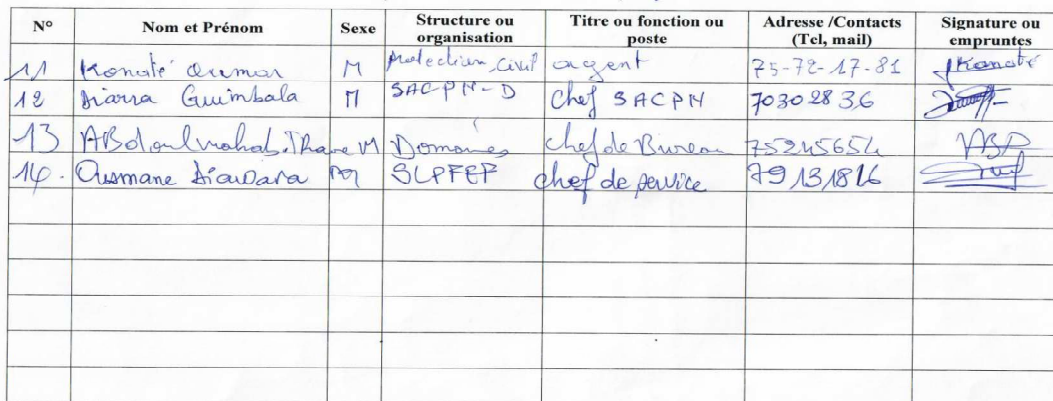 N° Nom et Prénom Sexe Structure ou organisation Titre ou fonction ou poste Adresse /Contacts (Tel, mail) Signature ou empruntes
11 Konaté Oumar M Protection Civil agent 75-72-17-81 Konaté
12 Diarra Guimbala M SACPN-D Chef SACPN 70302836
13 M Domaines chef de Bureau 75245654 ABD
14. Ousmane Diawara M SLPFEF chef de service 79131816